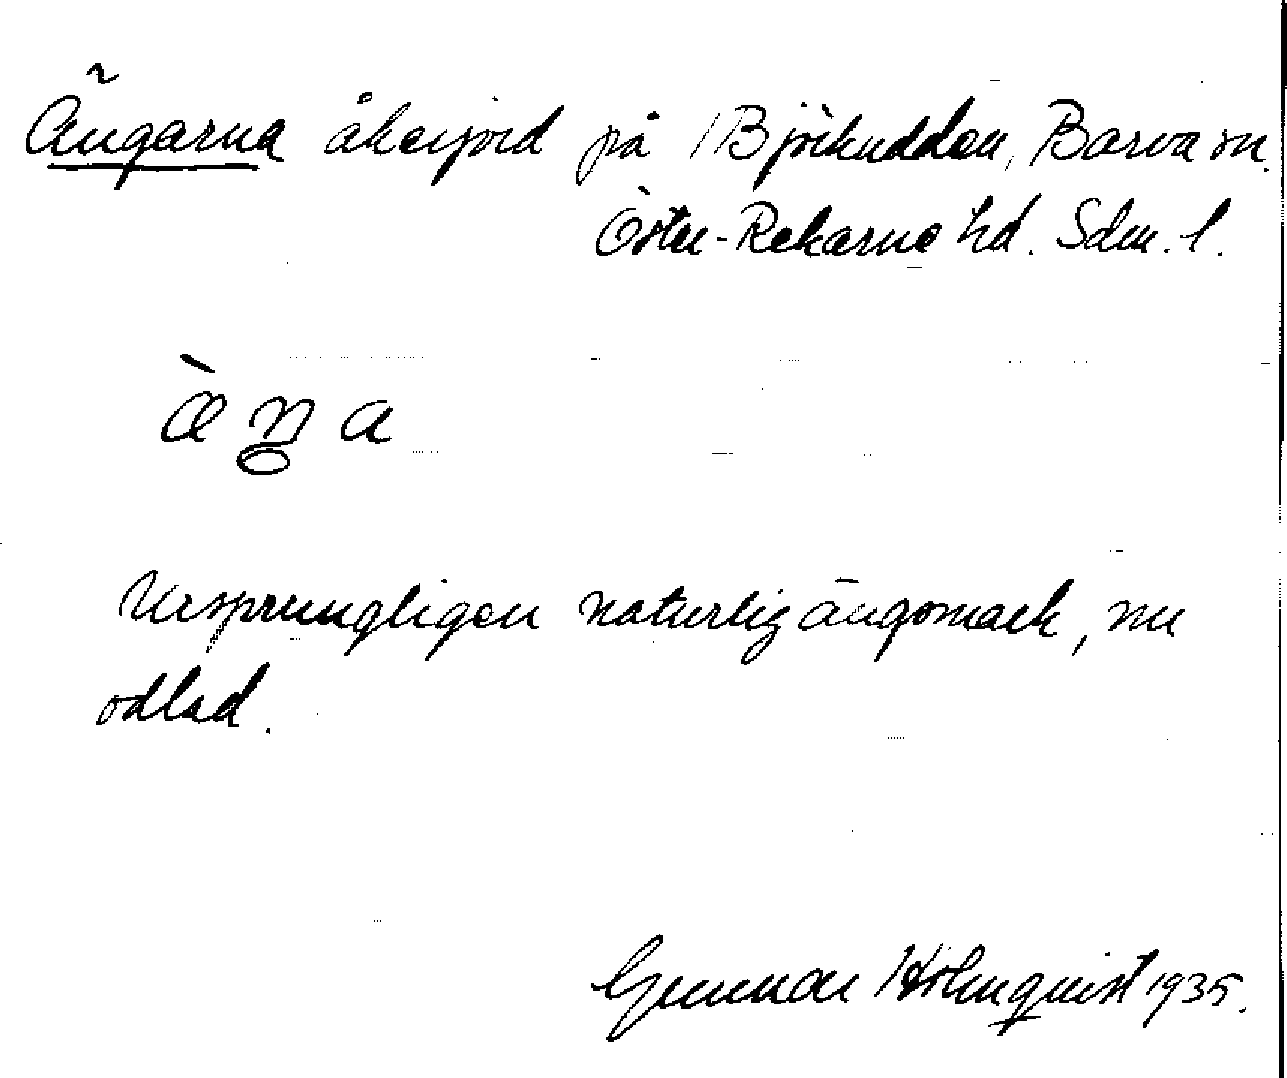 Ängarna åkerjord på Björkudden, Barva sn.
Öster-Rekarne hd. Sdm. l.
æ̀ŋa
Ursprungligen naturlig ängsmark, nu
odlad.
Gunnar Holmquist 1935.